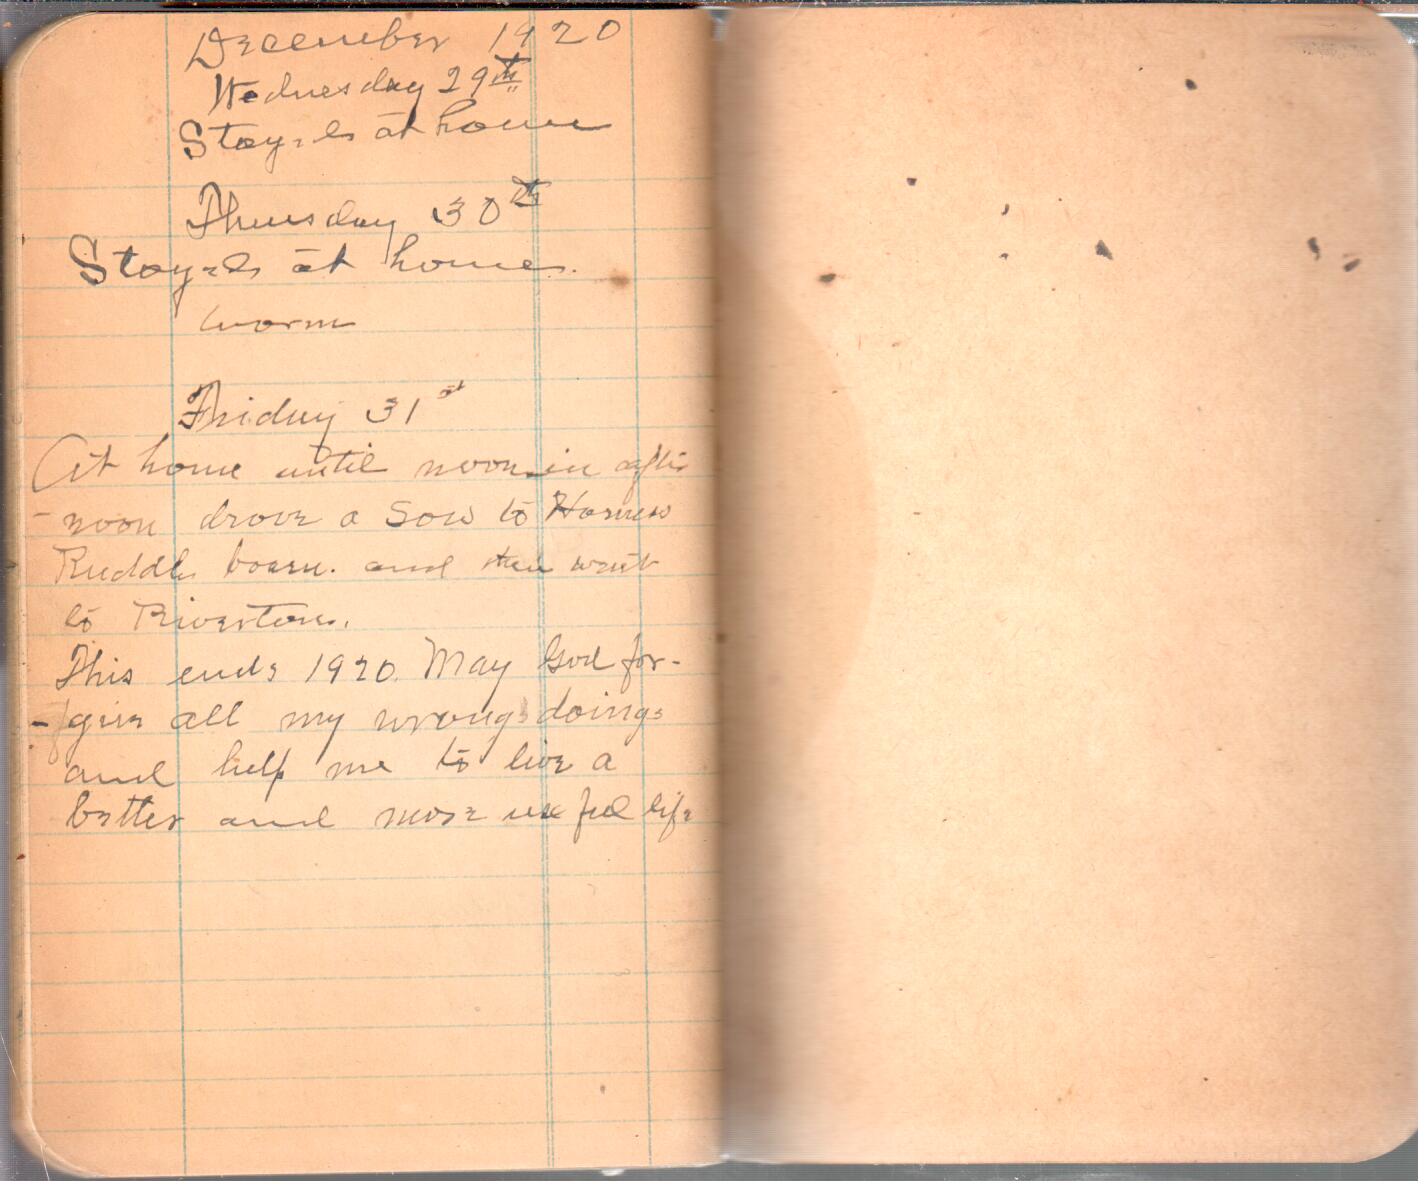 December 1920
Wednesday 29th
Stayed at home
Thursday 30th
Stayed at home.
worm
Friday 31st
At home until noon in after
-noon drove a Sow to Harness
Ruddle boaru. and then went
to Riverton.
This ends 1920. May God for-
-give all my wrongs doings
and help me to live a
better and more useful life